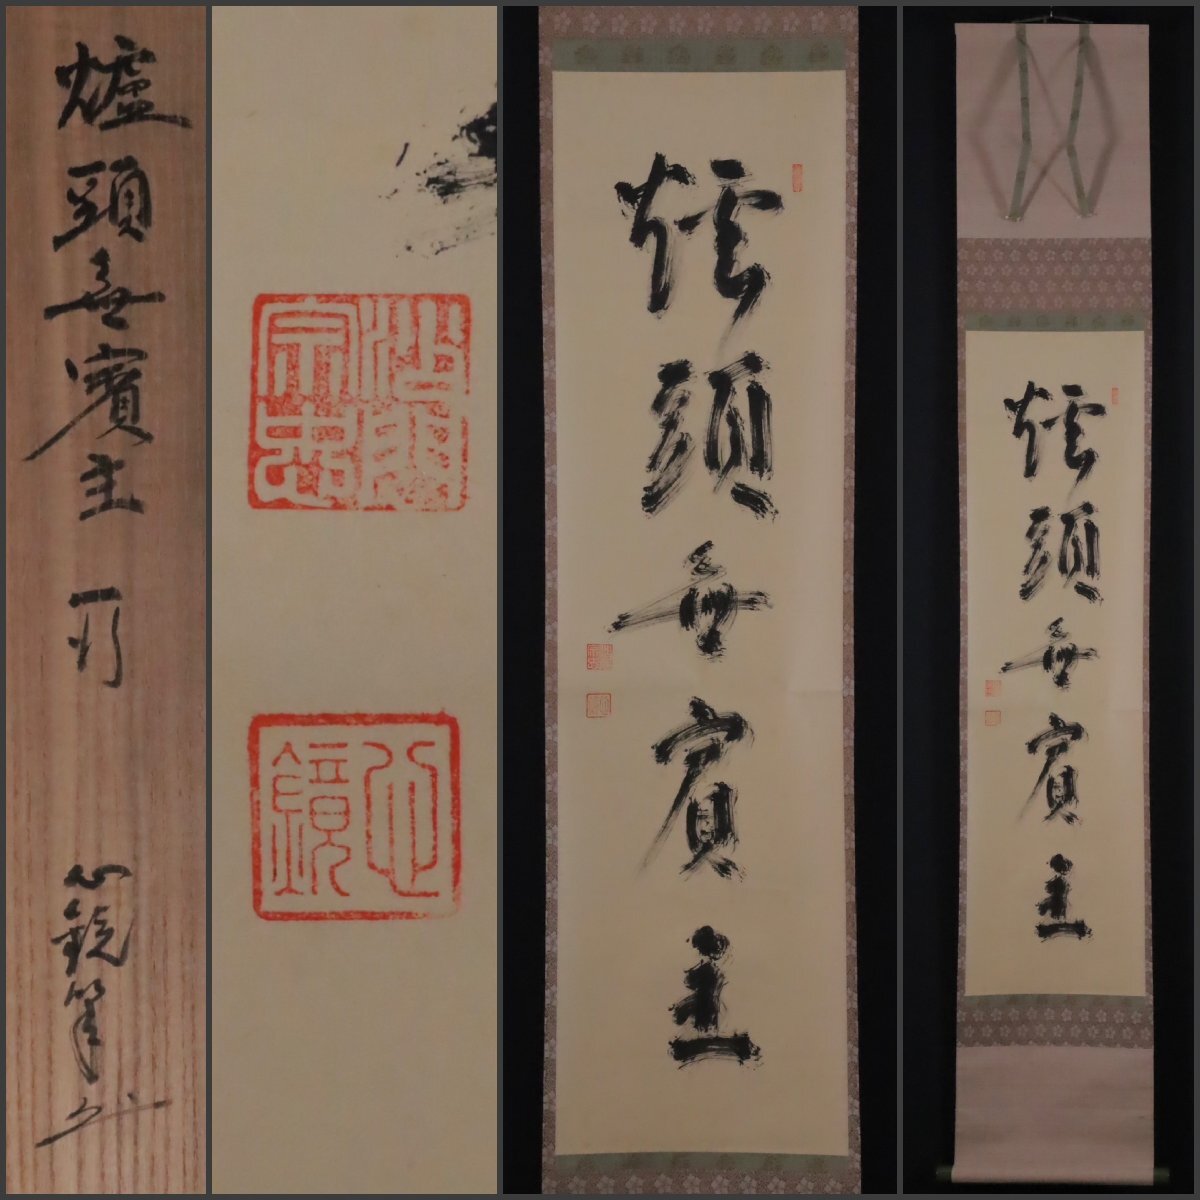 爐頭無賓主 一行
心鏡筆
沙門
宗忠
心
鏡
爐頭無賓主
爐頭無賓主